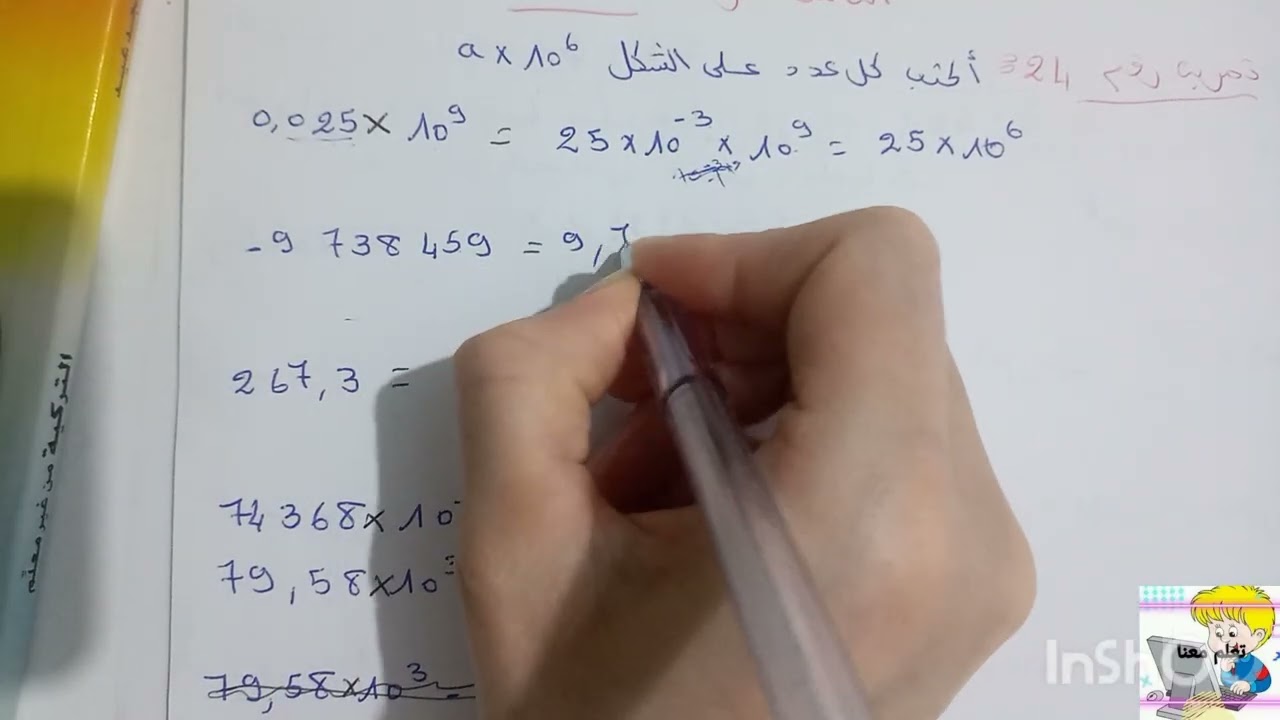 تمرين رقم 24 أكتب كل عدد على الشكل a × 10⁶
0,025 × 10⁹ = 25 × 10⁻³ × 10⁹ = 25 × 10⁶
-9 738 459 = 9,7
267,3 =
74 368 × 10
79,58 × 10³
79,58 × 10³
تعلم معنا
InSh